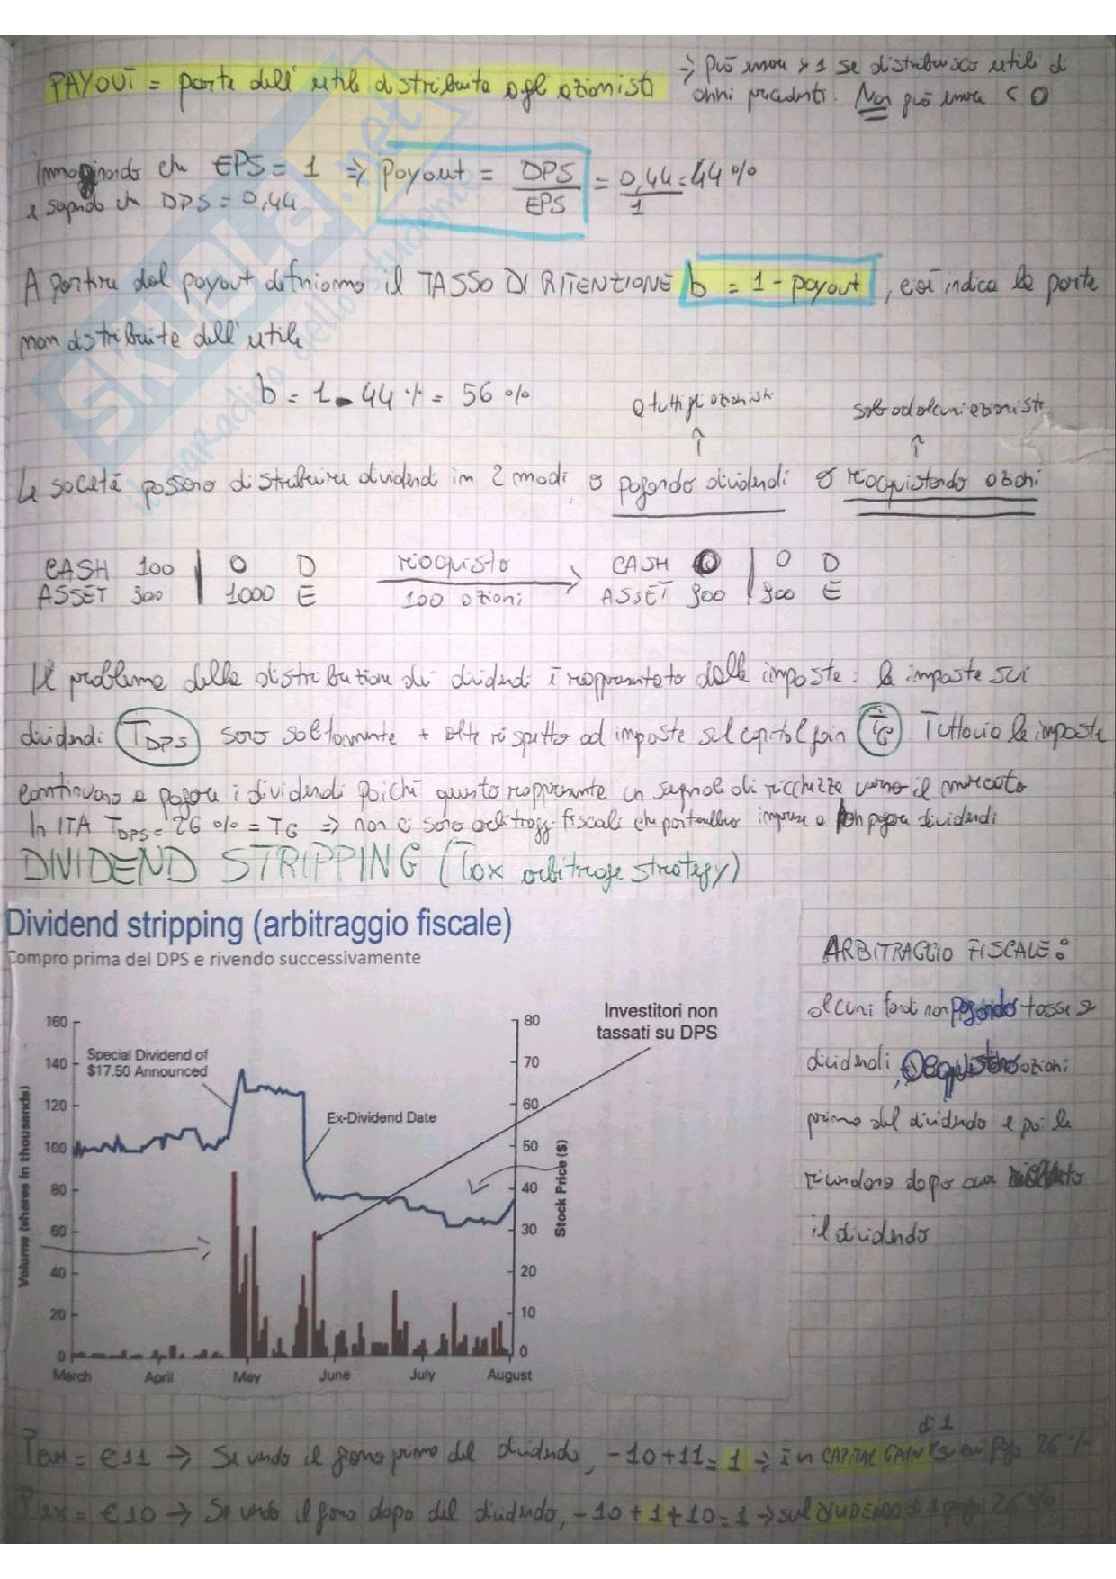 PAYOUT = parte dell'utile distribuita agli azionisti → può essere > 1 se distribuisco utili di
anni precedenti. Non può essere < 0
Immaginando che EPS = 1 ⇒ Payout = DPS / EPS = 0,44 / 1 = 44 %
e sapendo che DPS = 0,44
A partire dal payout definiamo il TASSO DI RITENZIONE b = 1 - payout, esso indica la parte
non distribuita dell'utile
b = 1 - 44 % = 56 %
a tutti gli azionisti
solo ad alcuni azionisti
Le società possono distribuire dividendi in 2 modi o pagando dividendi o riacquistando azioni
CASH 100 | 0 D riacquisto CASH 0 | 0 D
ASSET 900 | 1000 E 100 azioni ASSET 900 | 900 E
Il problema della distribuzione dei dividendi è rappresentato dalle imposte: le imposte sui
dividendi (T DPS) sono solitamente + alte rispetto ad imposte sul capital gain (T G) Tuttavia le imprese
continuano a pagare i dividendi poiché questo rappresenta un segnale di ricchezza verso il mercato
In ITA T DPS = 26 % = T G ⇒ non ci sono arbitraggi fiscali che portano imprese a non pagare dividendi
DIVIDEND STRIPPING (Tax arbitrage strategy)
Dividend stripping (arbitraggio fiscale)
Compro prima del DPS e rivendo successivamente
Investitori non
tassati su DPS
Special Dividend of
$17.50 Announced
Ex-Dividend Date
Volume (shares in thousands)
160
140
120
100
80
60
40
20
0
Stock Price ($)
80
70
60
50
40
30
20
10
0
March April May June July August
ARBITRAGGIO FISCALE:
alcuni fondi non pagando tasse su
dividendi, acquistano azioni
prima del dividendo e poi le
rivendono dopo aver
il dividendo
= € 11 → Se vendo il giorno prima del dividendo, -10+11 = 1 → in CAPITAL GAIN di 1 26 %
= € 10 → Se vendo il giorno dopo del dividendo, -10+1+10 = 1 → sul DIVIDENDO di 1 pago 26 %
SKUOLA.net